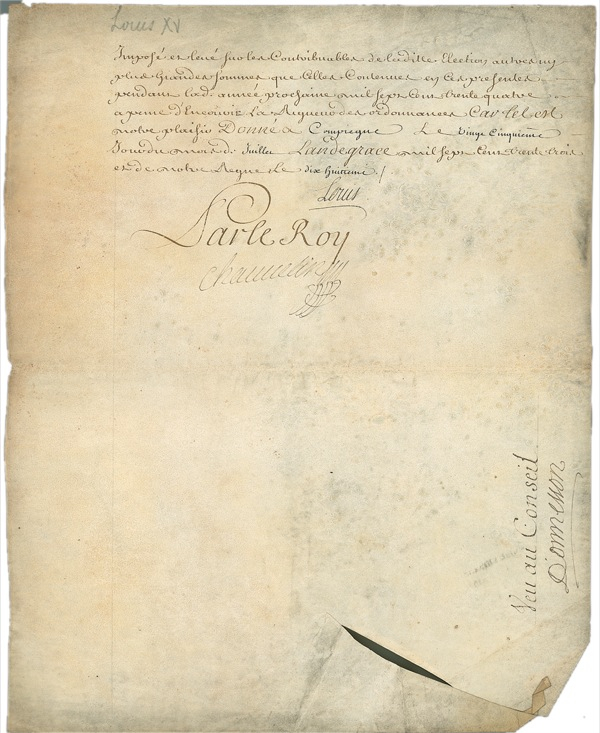 Louis XV
Imposé et levé sur les Contribuables de laditte Election autres ny
plus grandes sommes que Celles Contenues en Ces presentes
pendant lad. année prochaine mil sept Cent trente quatre
a peine d'Encourir la Rigueur des ordonnances Car tel est
notre plaisir Donné a Compiegne Le Vingt Cinquieme
Jour du mois de Juillet L'an de grace mil sept Cent trente trois
et de notre Regne Le dix huitieme /.
Louis
Par le Roy
Chauvelin
Veu au Conseil
D'ormesson